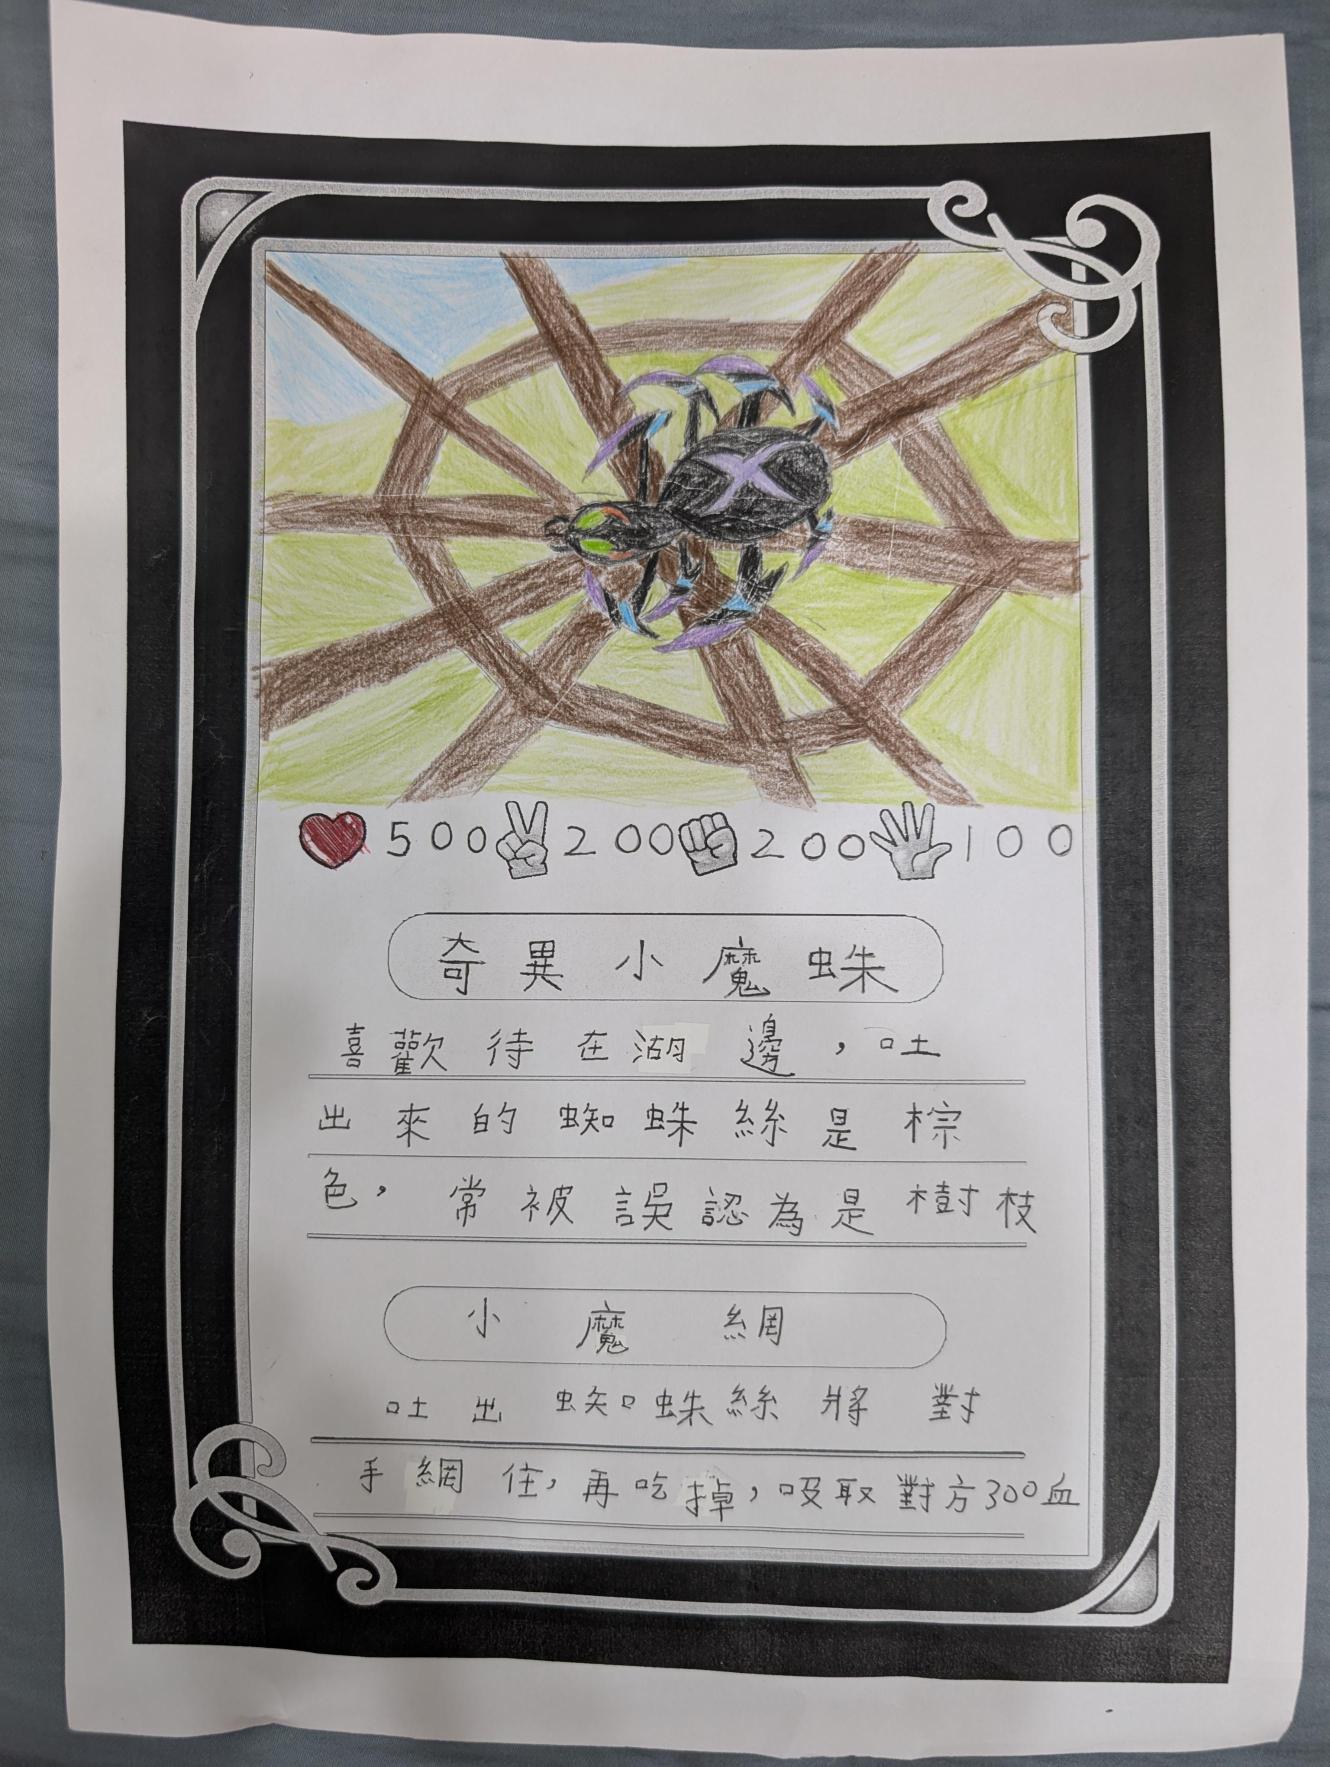 500 200 200 100
奇異小魔蛛
喜歡待在湖邊，吐
出來的蜘蛛絲是棕
色，常被誤認為是樹枝
小魔網
吐出蜘蛛絲將對
手網住，再吃掉，吸取對方300血